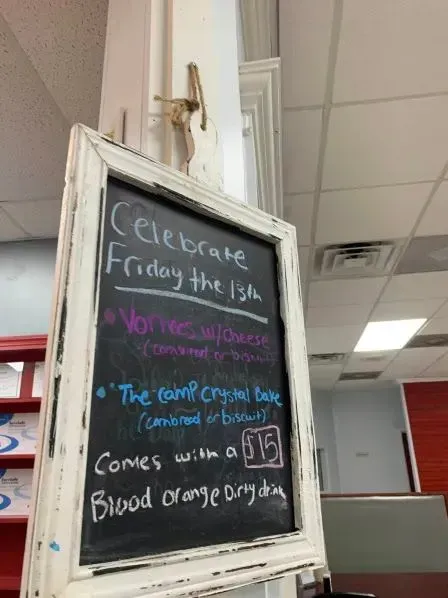 Celebrate
Friday the 13th
• Vorhees w/Cheese
(cornbread or biscuit)
• The camp Crystal Bake
(cornbread or biscuit)
Comes with a $15
Blood orange Dirty drink